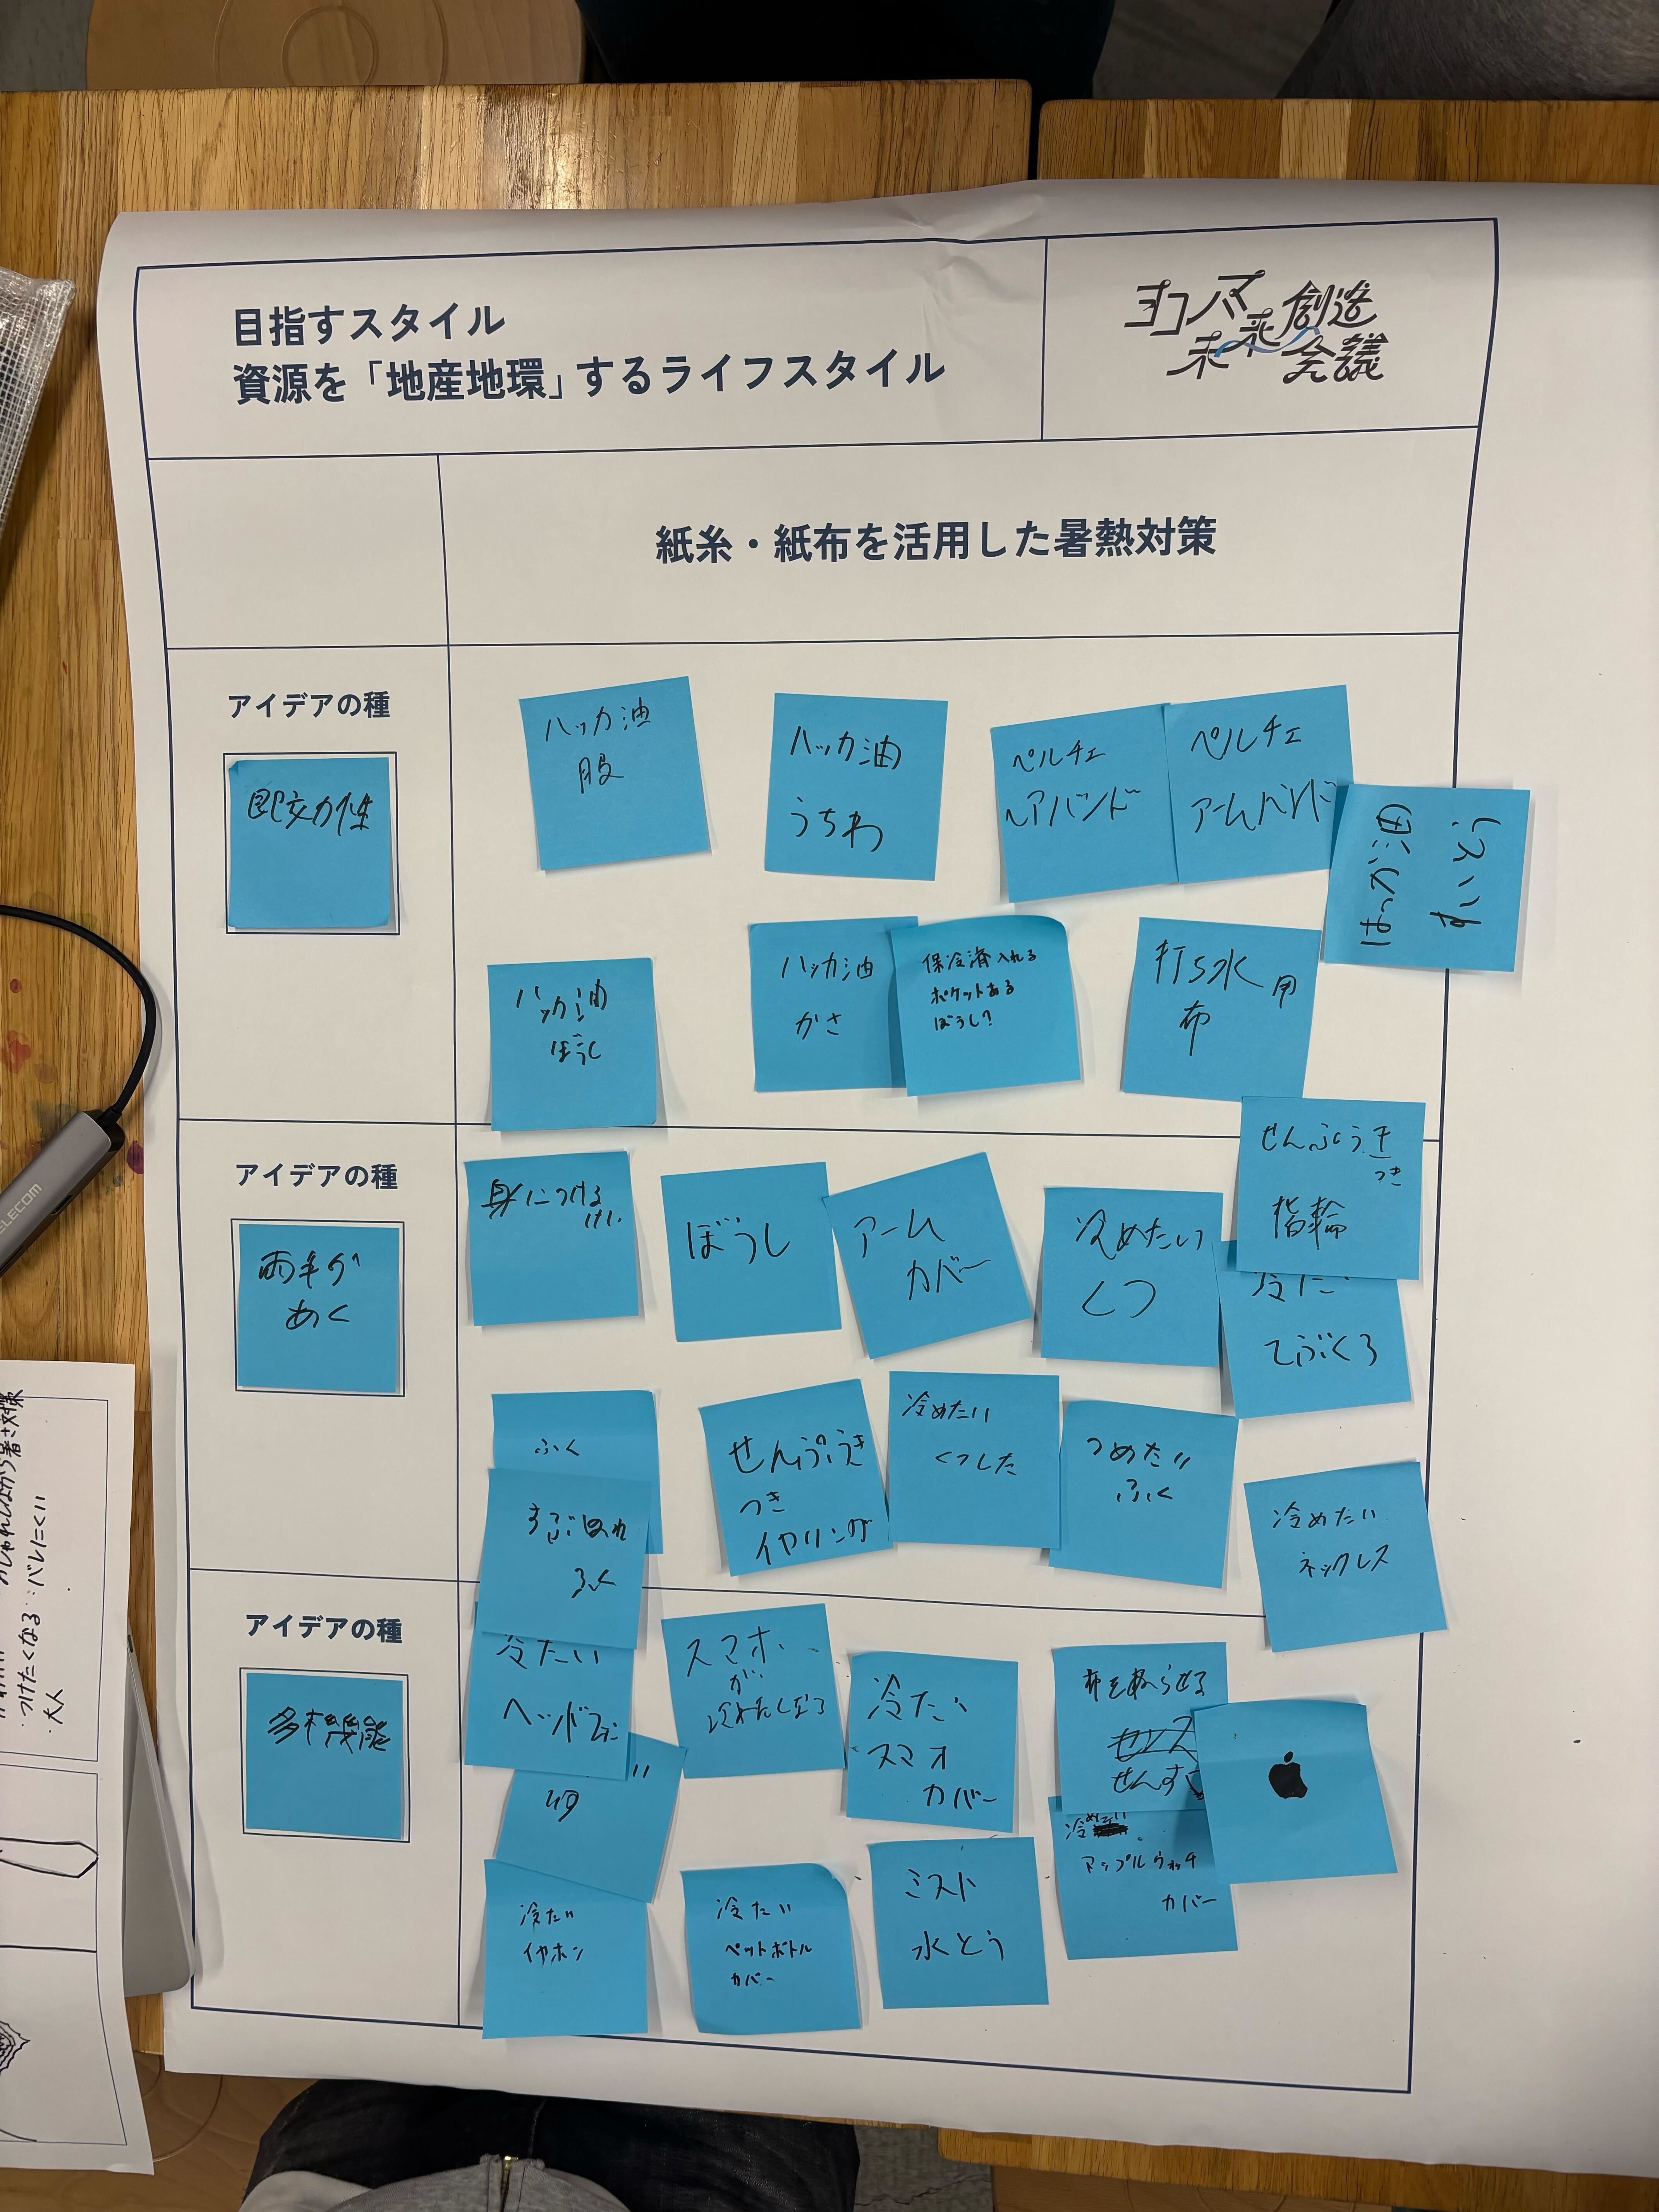 目指すスタイル
資源を「地産地環」するライフスタイル
ヨコハマ
未来創造
会議
紙糸・紙布を活用した暑熱対策
アイデアの種
即効性
ハッカ油
服
ハッカ油
うちわ
ペルチェ
ヘアバンド
ペルチェ
アームバンド
はっか油
ハッカ油
ぼうし
ハッカ油
かさ
保冷済入れる
ポケットある
ぼうし?
打ち水用
布
アイデアの種
両手が
あく
身につける
ぼうし
アーム
カバー
冷めたい
くつ
せんぷうき
つき
指輪
冷た
てぶくろ
ふく
ずぶぬれ
ふく
せんぷうき
つき
イヤリング
冷めたい
くつした
つめたい
ふく
冷めたい
ネックレス
アイデアの種
多機能
冷たい
スマホ
が
冷たい
スマオ
カバー
布を
せんす
冷めたい
アップルウォッチ
カバー
冷たい
イヤホン
冷たい
ペットボトル
カバー
ミスト
水とう
ELECOM
つけたくなる
バレにくい
大人